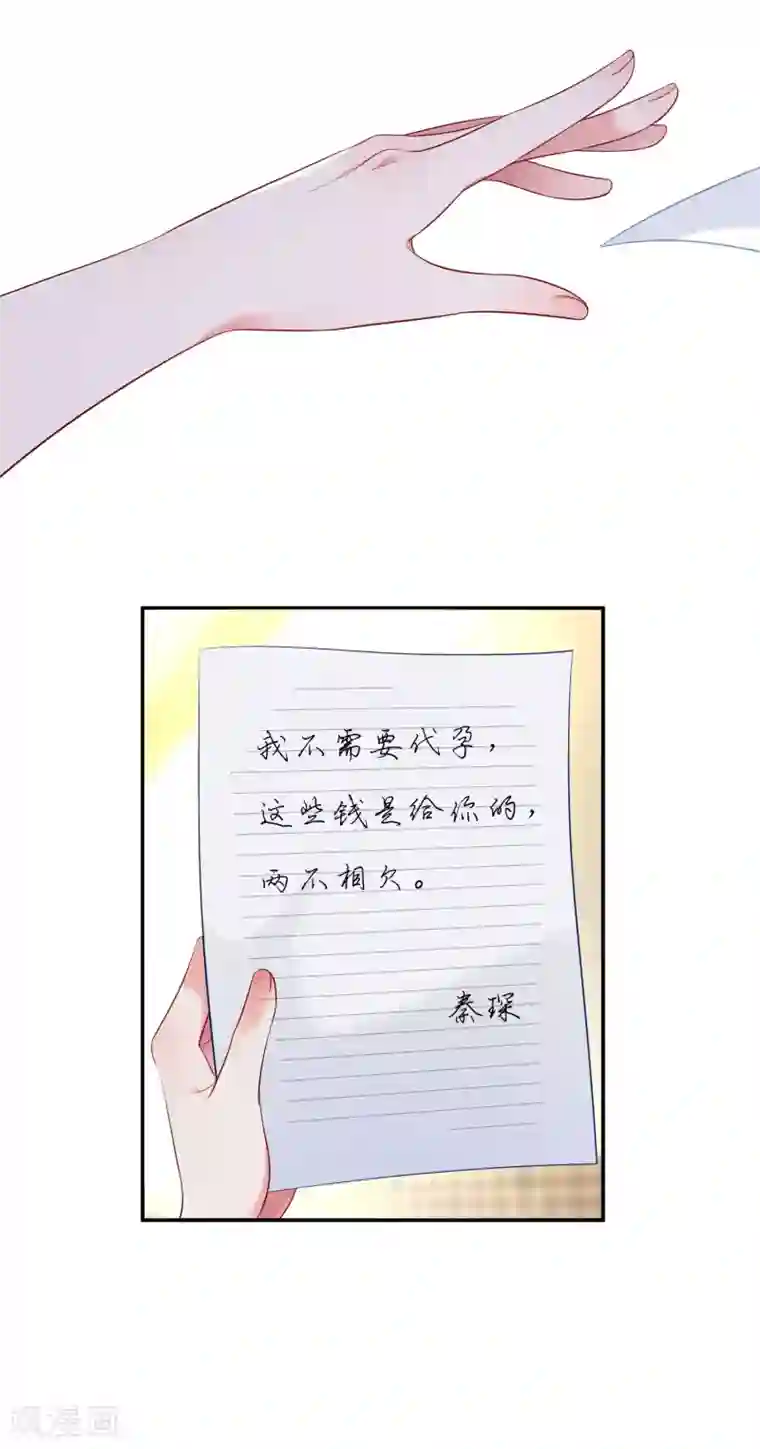 我不需要代孕，
这些钱是给你的，
两不相欠。
秦琛
漫画